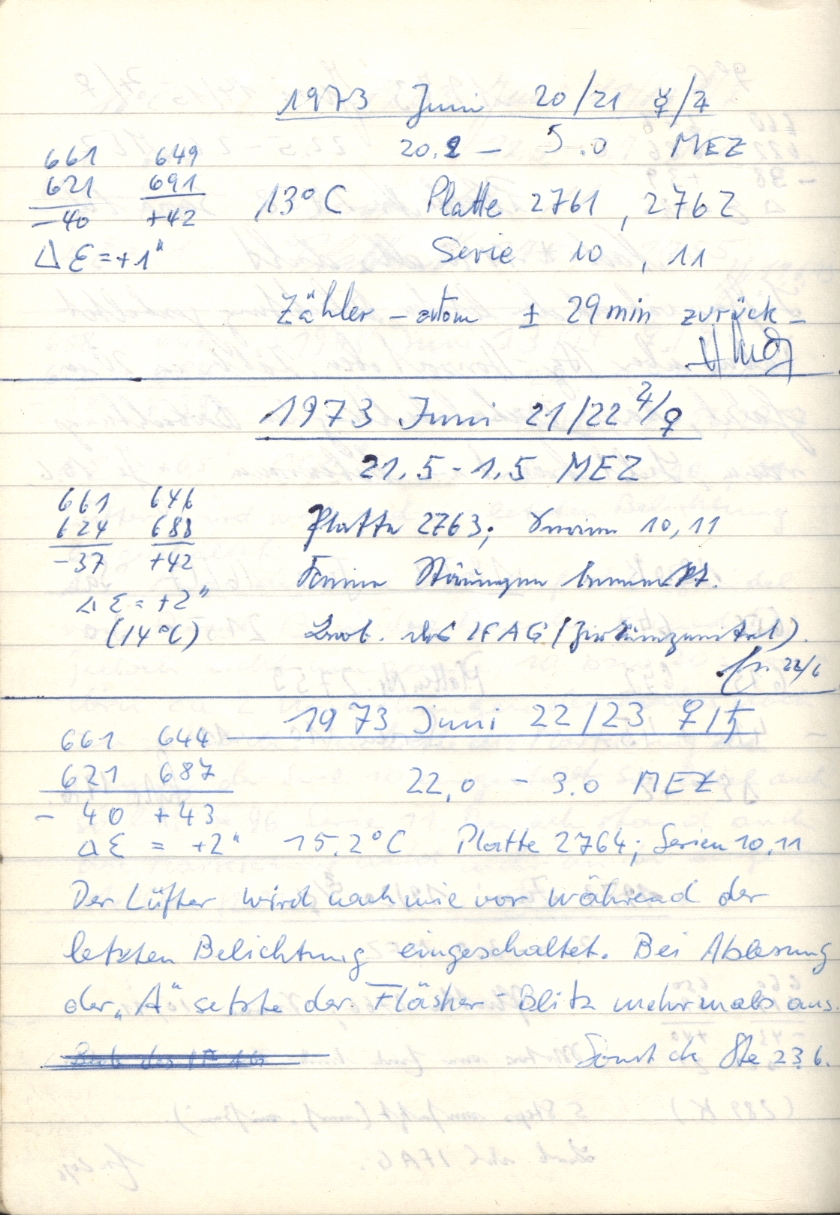 1973 Juni 20/21 ☿/♃
20.2 – 5.0 MEZ
661 649
621 691
–40 +42
Δ ε = +1"
13°C Platte 2761, 2762
Serie 10, 11
Zähler – atom ± 29 min zurück –
1973 Juni 21/22 ♃/♀
21.5 - 1.5 MEZ
661 646
624 688
–37 +42
Δ ε = +2"
(14°C)
Platte 2763; Serien 10, 11
Keine Störungen bemerkt.
Beob. des IFAG (Zirkumzenital).
22/6
1973 Juni 22/23 ♀/♄
661 644
621 687
– 40 +43
22.0 – 3.0 MEZ
Δ ε = +2" 15.2°C Platte 2764; Serien 10, 11
Der Lüfter wird nach wie vor während der
letzten Belichtung eingeschaltet. Bei Ablesung
der „A" setzte der Fläsher-Blitz mehrmals aus.
Beob des IFAG
Sonst ok Ste 23 6.